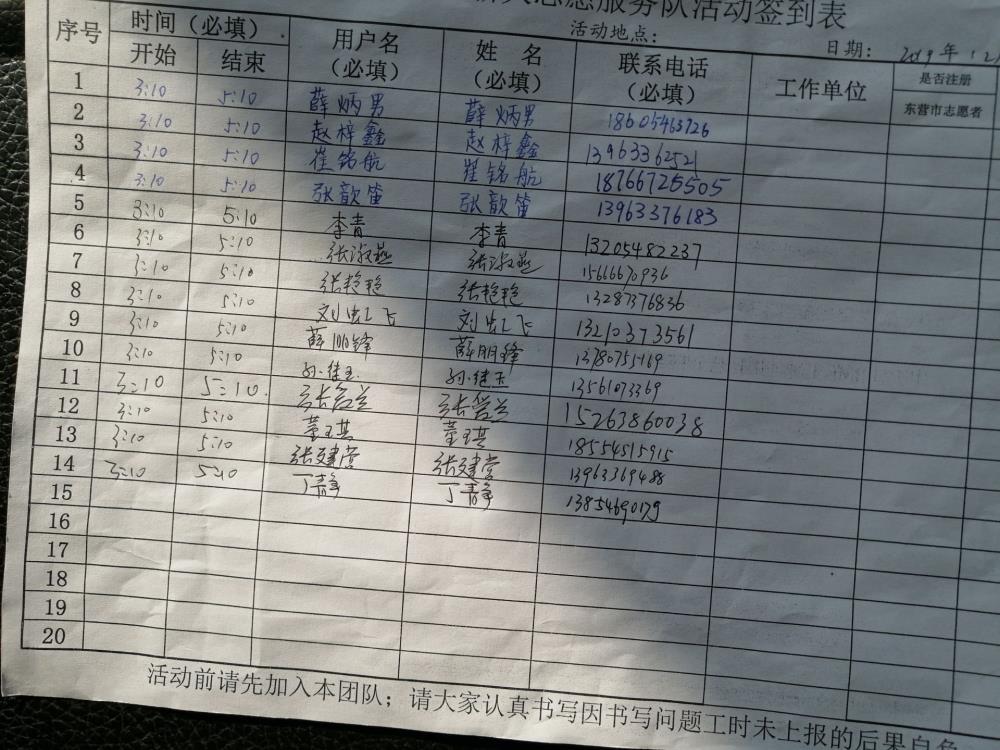 志愿服务队活动签到表
活动地点：
日期： 2019年12
序号 时间（必填） 用户名（必填） 姓 名（必填） 联系电话（必填） 工作单位 是否注册东营市志愿者
开始 结束
1 3:10 5:10 薛炳男 薛炳男 18605463726
2 3:10 5:10 赵梓鑫 赵梓鑫 13963362521
3 3:10 5:10 崔铭航 崔铭航 18766725505
4 3:10 5:10 张歆笛 张歆笛 13963376183
5 3:10 5:10 李青 李青 13205482237
6 3:10 5:10 张淑燕 张淑燕 15666670936
7 3:10 5:10 张艳艳 张艳艳 13287376836
8 3:10 5:10 刘虹飞 刘虹飞 13210373561
9 3:10 5:10 薛朋锋 薛朋锋 13780755169
10 3:10 5:10 孙继玉 孙继玉 13561073369
11 3:10 5:10 15263860038
12 3:10 5:10 董王琪 董王琪 18554515915
13 3:10 5:10 张建营 张建营 13963369488
14 3:10 5:10 丁静 丁静 13854690179
15
16
17
18
19
20
活动前请先加入本团队；请大家认真书写因书写问题工时未上报的后果自负